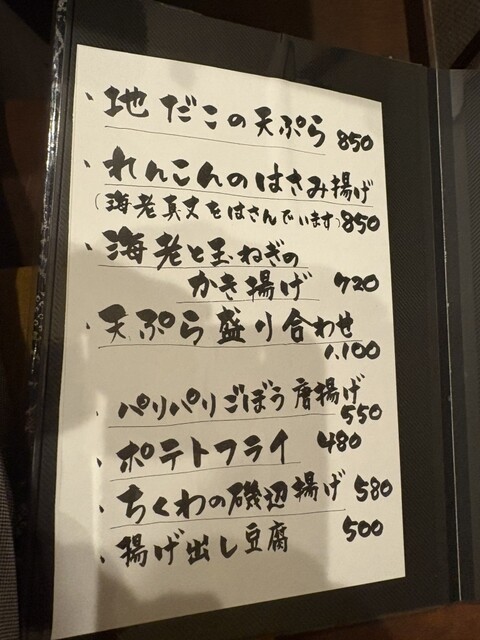 、地だこの天ぷら 850
、れんこんのはさみ揚げ
(海老真丈をはさんでいます) 850
、海老と玉ねぎの
かき揚げ 720
、天ぷら盛り合わせ
1,100
、パリパリごぼう唐揚げ
550
、ポテトフライ 480
、ちくわの磯辺揚げ 580
、揚げ出し豆腐 500